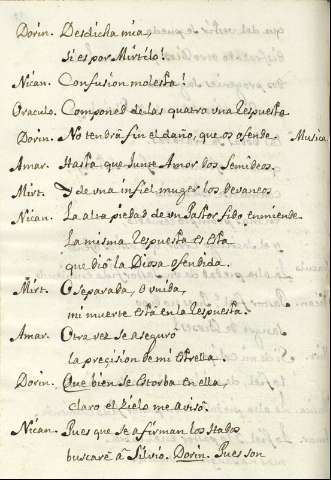 Dorin. Desdicha mia,
si es por Mirtilo!
Nican. Confusion molesta!
Oraculo. Componed de las quatro vna Respuesta
Dorin. No tendrà fin el daño, que os ofende Musica.
Amar. Hasta que junte Amor dos Semideos.
Mirt. Y de vna infiel muger los devaneos
Nican. La alta piedad de vn Pastor fido enmiende
La misma Respuesta es esta
que diô la Diosa ofendida.
Mirt. O separada, o vnida,
mi muerte està en la Respuesta.
Amar. Otra vez se aseguro
la precision de mi estrella.
Dorin. Que bien se estorba en ella,
claro el zielo me avisô.
Nican. Pues que se afirman los Hados
buscarè â Silvio. Dorin. Pues son